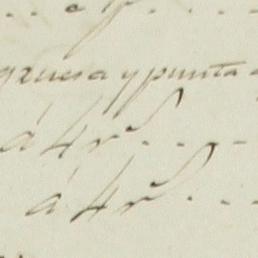 gruesa y punta
á 4 r.s . . .
á 4 r.s . . .